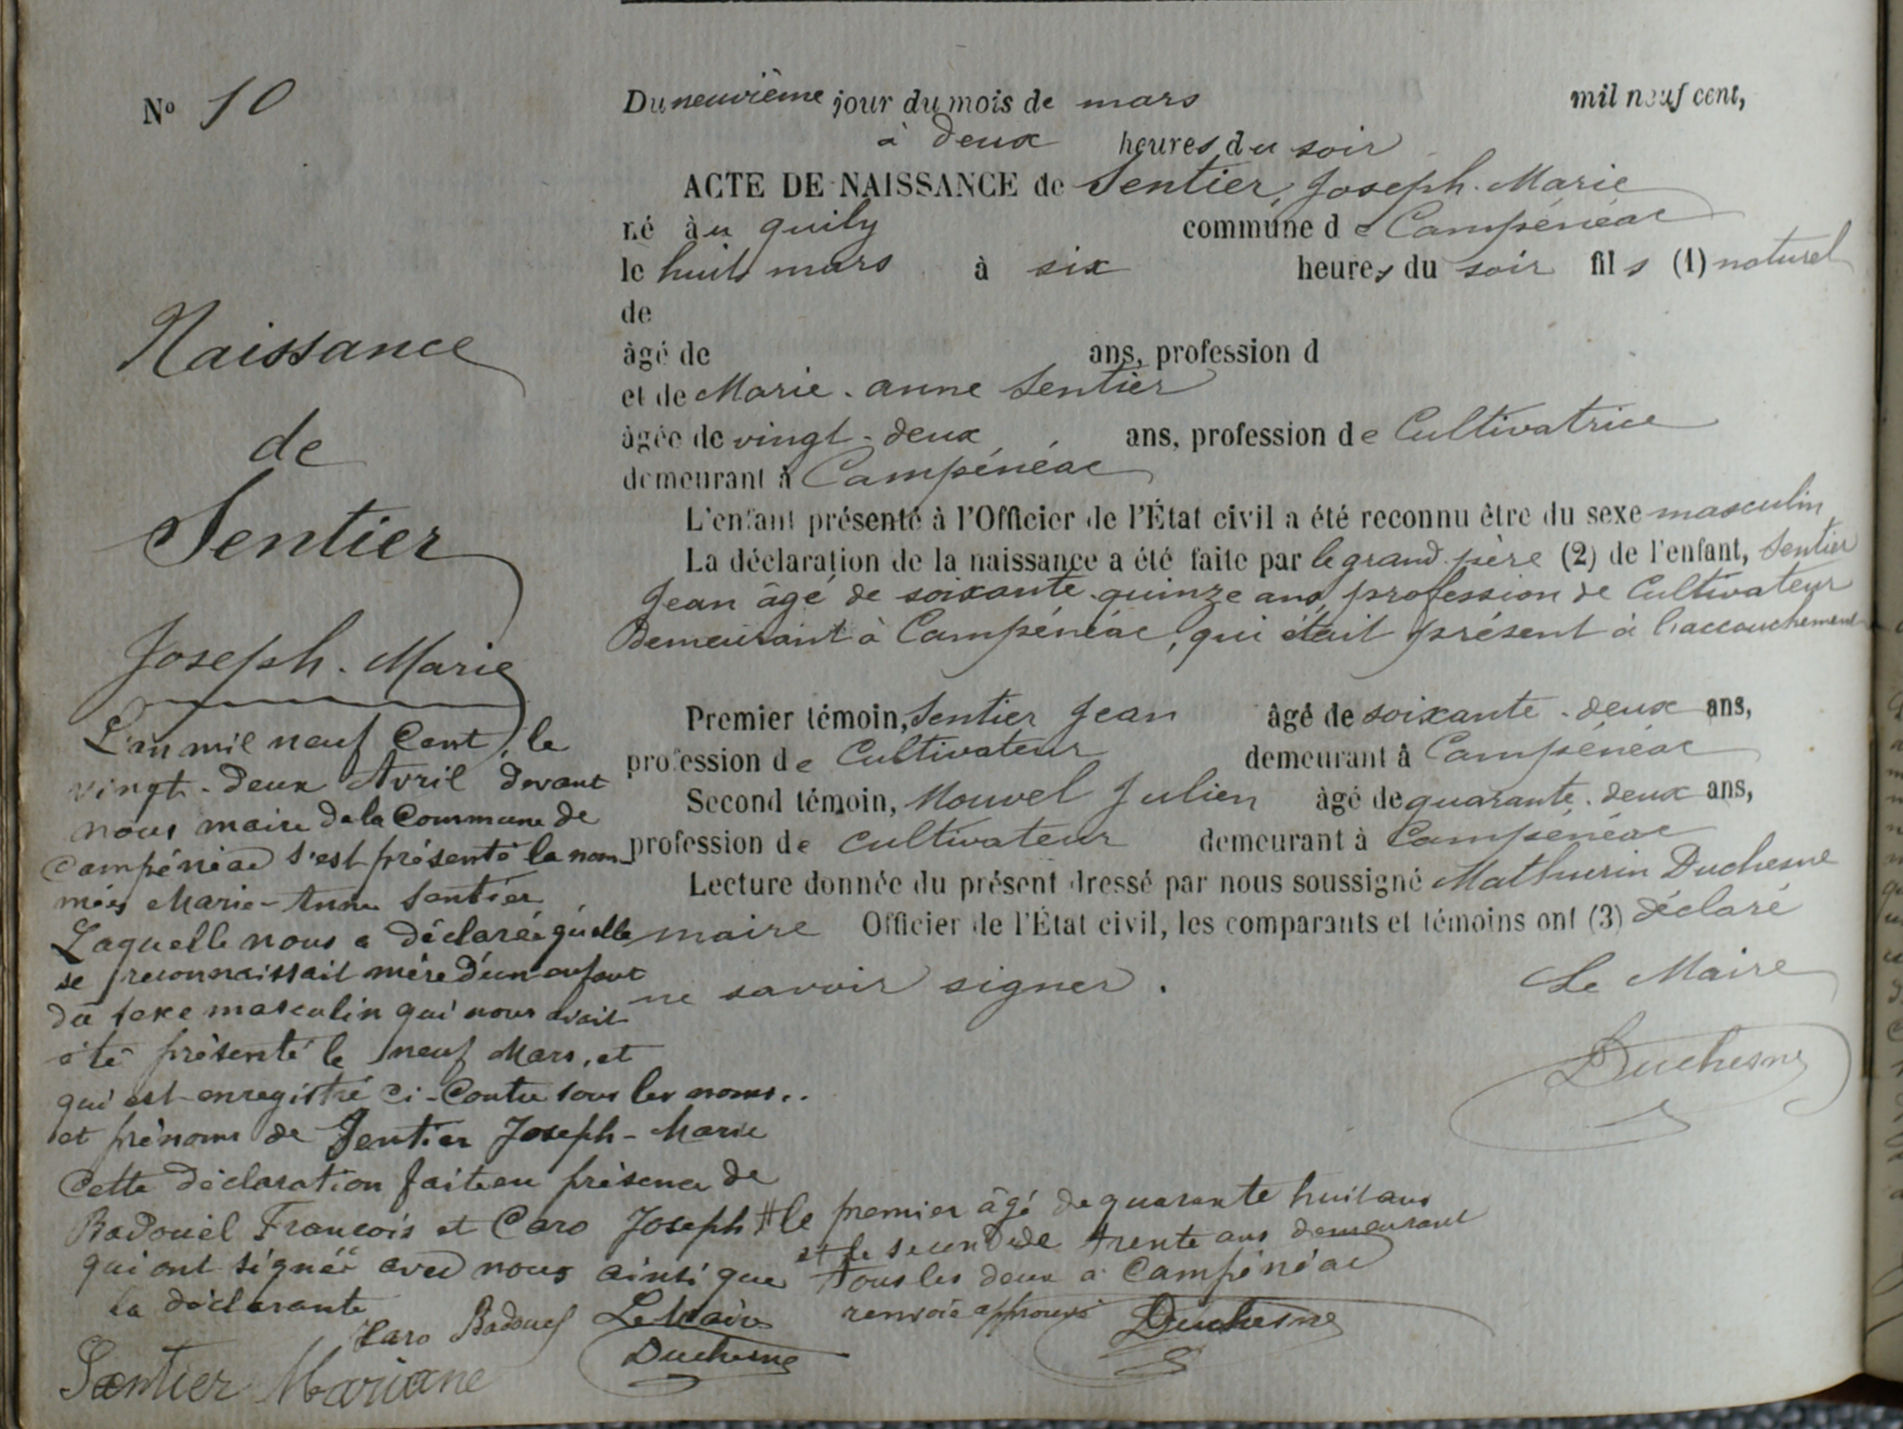 N° 10
Du neuvième jour du mois de mars mil neuf cent,
à deux heures du soir
ACTE DE NAISSANCE de Sentier, Joseph-Marie
né au quily commune de Campénéac
le huit mars à six heures du soir fils (1) naturel
de
âgé de ans, profession d
et de Marie-anne Sentier
âgée de vingt-deux ans, profession de Cultivatrice
demeurant à Campénéac
L'enfant présenté à l'Officier de l'État civil a été reconnu être du sexe masculin
La déclaration de la naissance a été faite par le grand-père (2) de l'enfant, Sentier
Jean âgé de soixante-quinze ans, profession de Cultivateur
Demeurant à Campénéac, qui était présent à l'accouchement
Premier témoin, Sentier Jean âgé de soixante-deux ans,
profession de Cultivateur demeurant à Campénéac
Second témoin, Nouvel Julien âgé de quarante-deux ans,
profession de cultivateur demeurant à Campénéac
Lecture donnée du présent dressé par nous soussigné Mathurin Duchesne
maire Officier de l'État civil, les comparants et témoins ont (3) déclaré
ne savoir signer.
Le Maire
Duchesne
Naissance
de
Sentier
Joseph-Marie
L'an mil neuf Cent, le
vingt-deux Avril devant
nous maire de la Commune de
Campénéac s'est présenté la nom-
mées Marie-Anne Sentier
Laquelle nous a déclarée qu'elle
se reconnaissait mère d'un enfant
du sexe masculin qui nous avait
été présenté le neuf Mars, et
qui est enregistré ci-Contre sous les noms..
et prénoms de Sentier Joseph-Marie
Cette déclaration faite en présence de
Badouël François et Caro Joseph # le premier âgé de quarante huit ans
et le second de trente ans demeurant
qui ont signée avec nous ainsi que tous les deux à Campénéac
la déclarante renvoie approuvé Duchesne
Caro Badouel Le Maire
Duchesne
Sentier Mariane